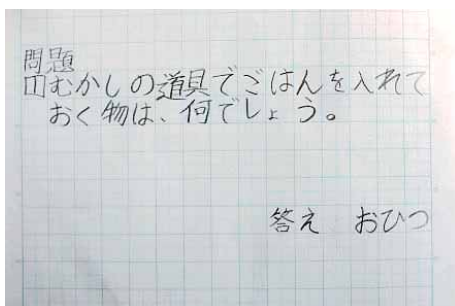 問題
1むかしの道具でごはんを入れて
おく物は、何でしょう。
答え おひつ